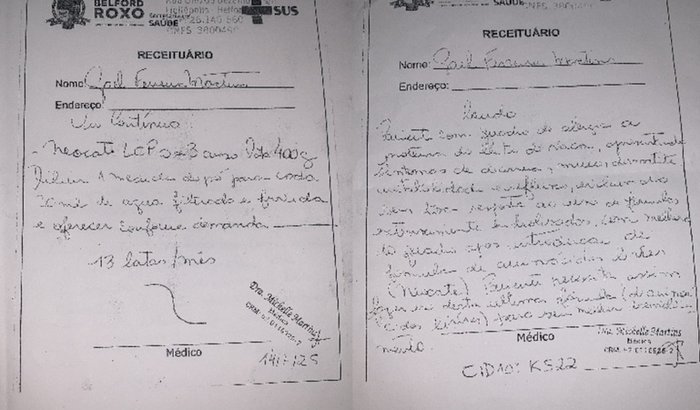 BELFORD
ROXO
SECRETARIA DE
SAÚDE
SUS
RECEITUÁRIO
Nome: Gael Ferreira Martins
Endereço:
Uso Contínuo
- Neocate LCP 0 a 3 anos Pote 400g
Diluir 1 medida do pó para cada
30ml de água filtrada e fervida
e oferecer conforme demanda
13 latas/mês
Dra. Michelle Martins
Médica
Médico
SAÚDE
RECEITUÁRIO
Nome: Gael Ferreira Martins
Endereço:
Laudo
Paciente com quadro de alergia a
proteína do leite de vaca, apresentando
sintomas de diarreia, muco,
irritabilidade e refluxo,
sem boa resposta ao uso de fórmulas
extensamente hidrolisadas, com melhora
do quadro após introdução de
fórmula de aminoácidos livres
(Neocate). Paciente necessita assim
fazer uso desta última fórmula (de aminoá-
cidos livres) para seu melhor
mento.
Dra. Michelle Martins
Médica
Médico
CID10: K522